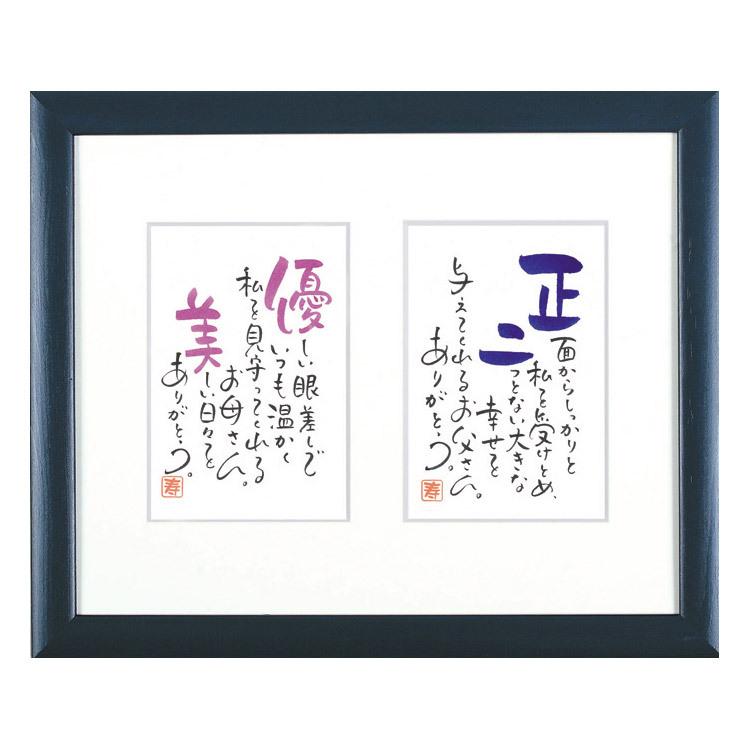 正面からしっかりと
私を受けとめ、
二つとない大きな
幸せを
与えてくれるお父さん。
ありがとう。
寿
優しい眼差しで
いつも温かく
私を見守ってくれる
お母さん。
美しい日々を
ありがとう。
寿